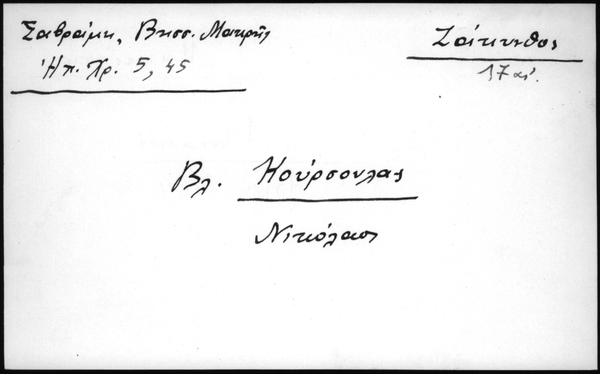 Σαβράμη, Βησσ. Μακρῆς
Ἠπ. Χρ. 5, 45
Ζάκυνθος
17 αἰ.
Βλ. Κούρσουλας
Νικόλαος